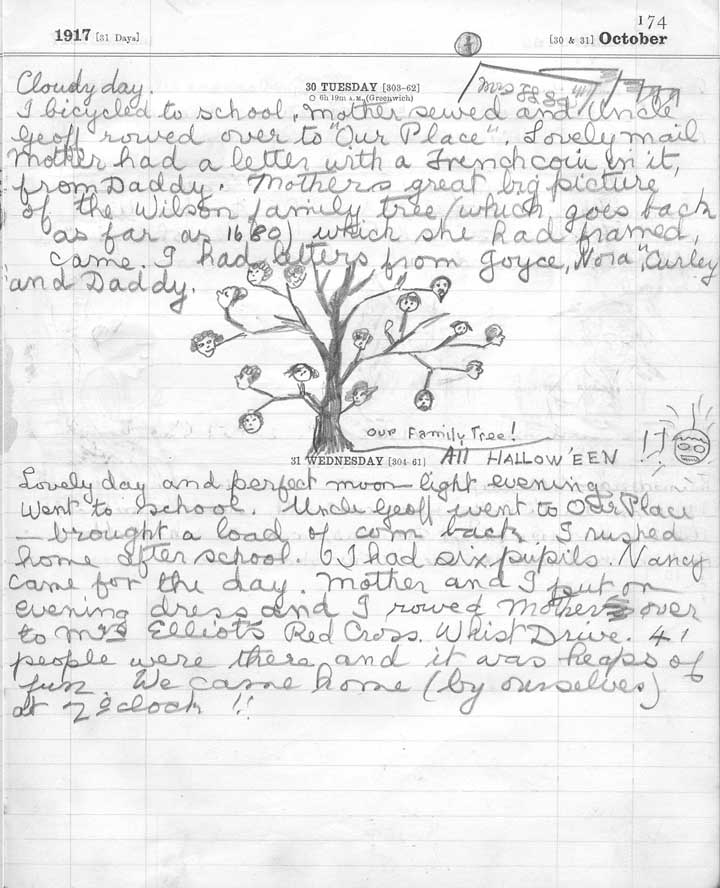 174
1917 [31 Days] [30 & 31] October
30 TUESDAY [303-62]
6h 19m A.M. (Greenwich)
Cloudy day.
I bicycled to school. Mother sewed and Uncle
Geoff rowed over to "Our Place". Lovely mail
Mother had a letter with a French coin in it,
from Daddy. Mothers great big picture
of the Wilson family tree (which goes back
as far as 1680) which she had framed,
came. I had letters from Joyce, Nora, "Curley"
and Daddy.
Our Family Tree!
31 WEDNESDAY [304-61] All HALLOW'EEN !?
Lovely day and perfect moon-light evening
Went to school. Uncle Geoff went to Our Place
– brought a load of corn back. I rushed
home after school. I had six pupils. Nancy
came for the day. Mother and I put on
evening dress and I rowed Mother over
to Mrs Elliot's Red Cross Whist Drive. 41
people were there and it was heaps of
fun. We came home (by ourselves)
at 2 o'clock !!